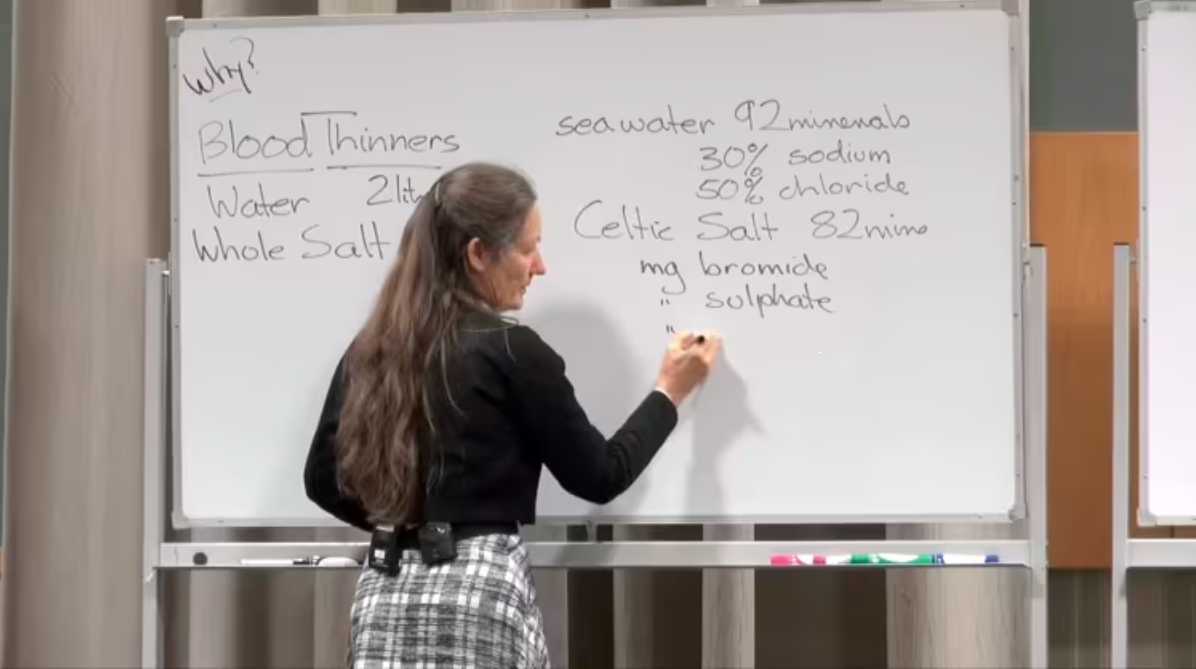 Why?
Blood Thinners
Water 2lit
Whole Salt
seawater 92minerals
30% sodium
50% chloride
Celtic Salt 82mins
mg bromide
" sulphate
"